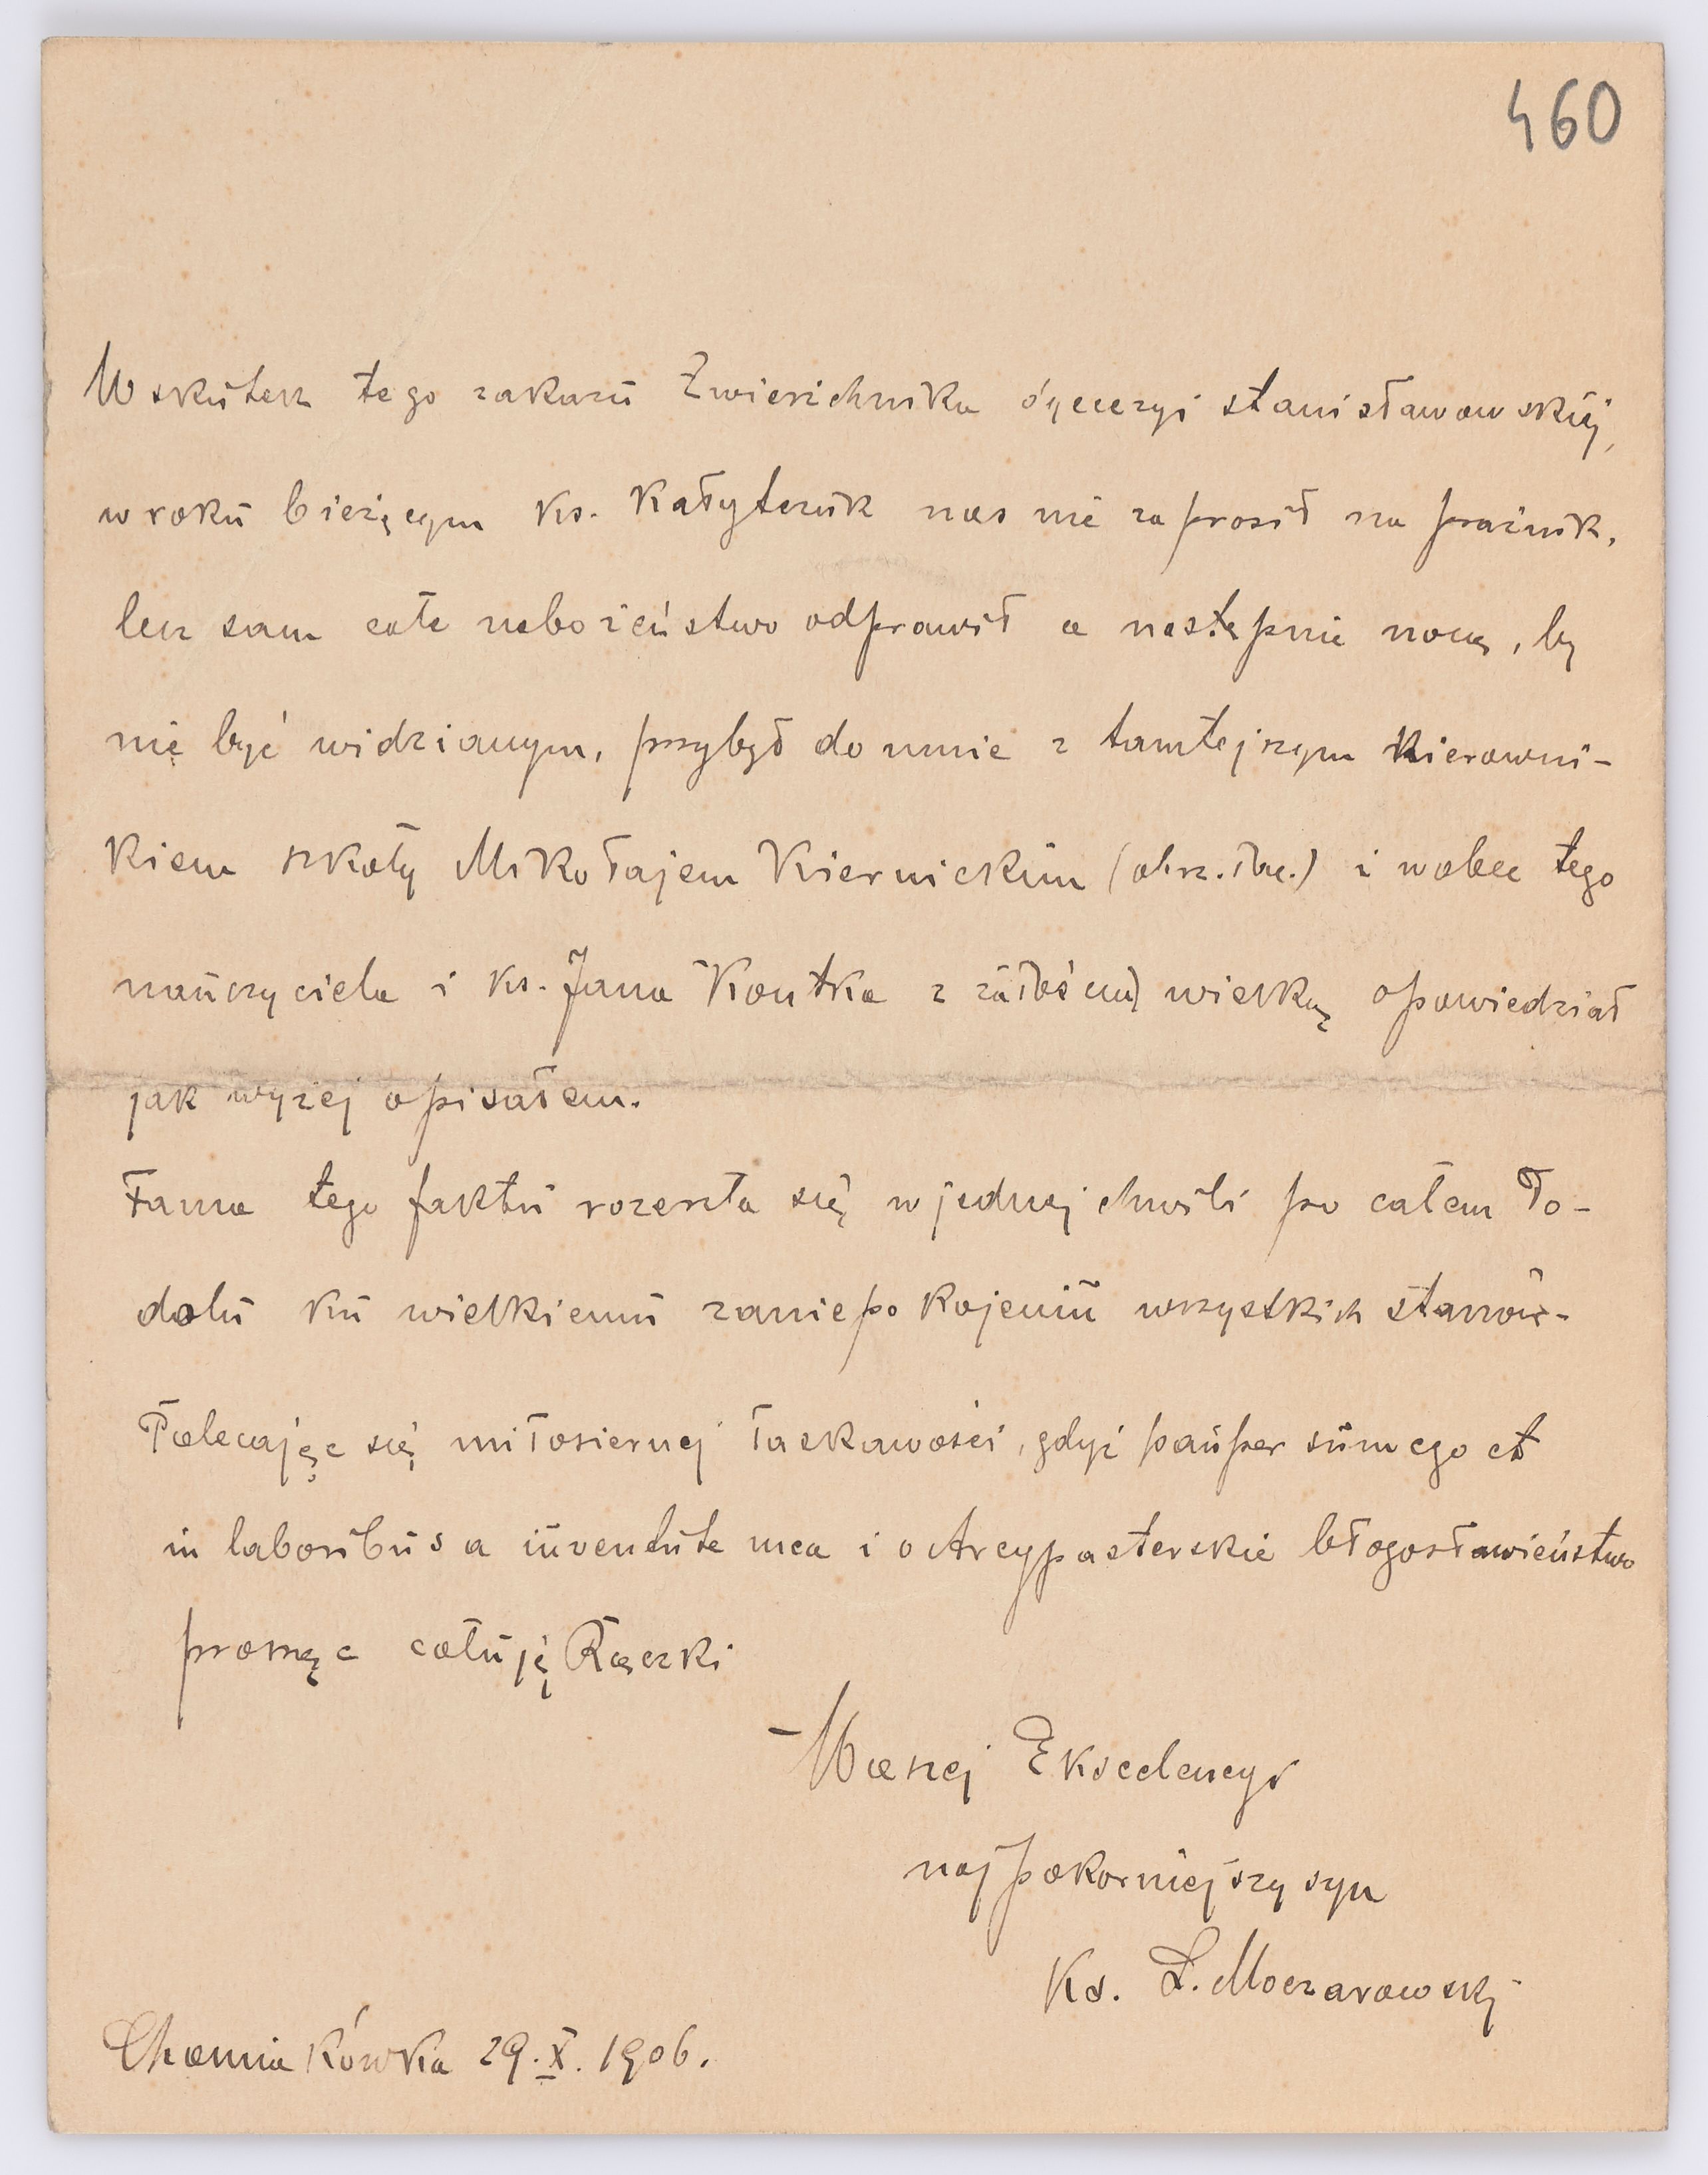 460
Wskutek tego zakazu Zwierzchnika dyecezyi stanisławowskiej,
w roku bieżącym ks. Kałytczuk nas nie zaprosił na praźnik,
lecz sam całe nabożeństwo odprawił a następnie nocą, by
nie być widzianym, przybył do mnie z tamtejszym kierowni-
kiem szkoły Mikołajem Kiernickim (obrz. łac.) i wobec tego
nauczyciela i ks. Jana Kontka z żałością wielką opowiedział
jak wyżej opisałem.
Fama tego faktu rozeszła się w jednej chwili po całem Po-
dolu ku wielkiemu zaniepokojeniu wszystkich stanów.
Polecając się miłosiernej łaskawości, gdyż pauper sum ego et
in laboribus a iuventute mea i o Arcypasterskie błogosławieństwo
prosząc całuję Rączki
Waszej Ekscelencyi
najpokorniejszy syn
Ks. L. Moczarowski
Chomiakówka 29. X. 1906.